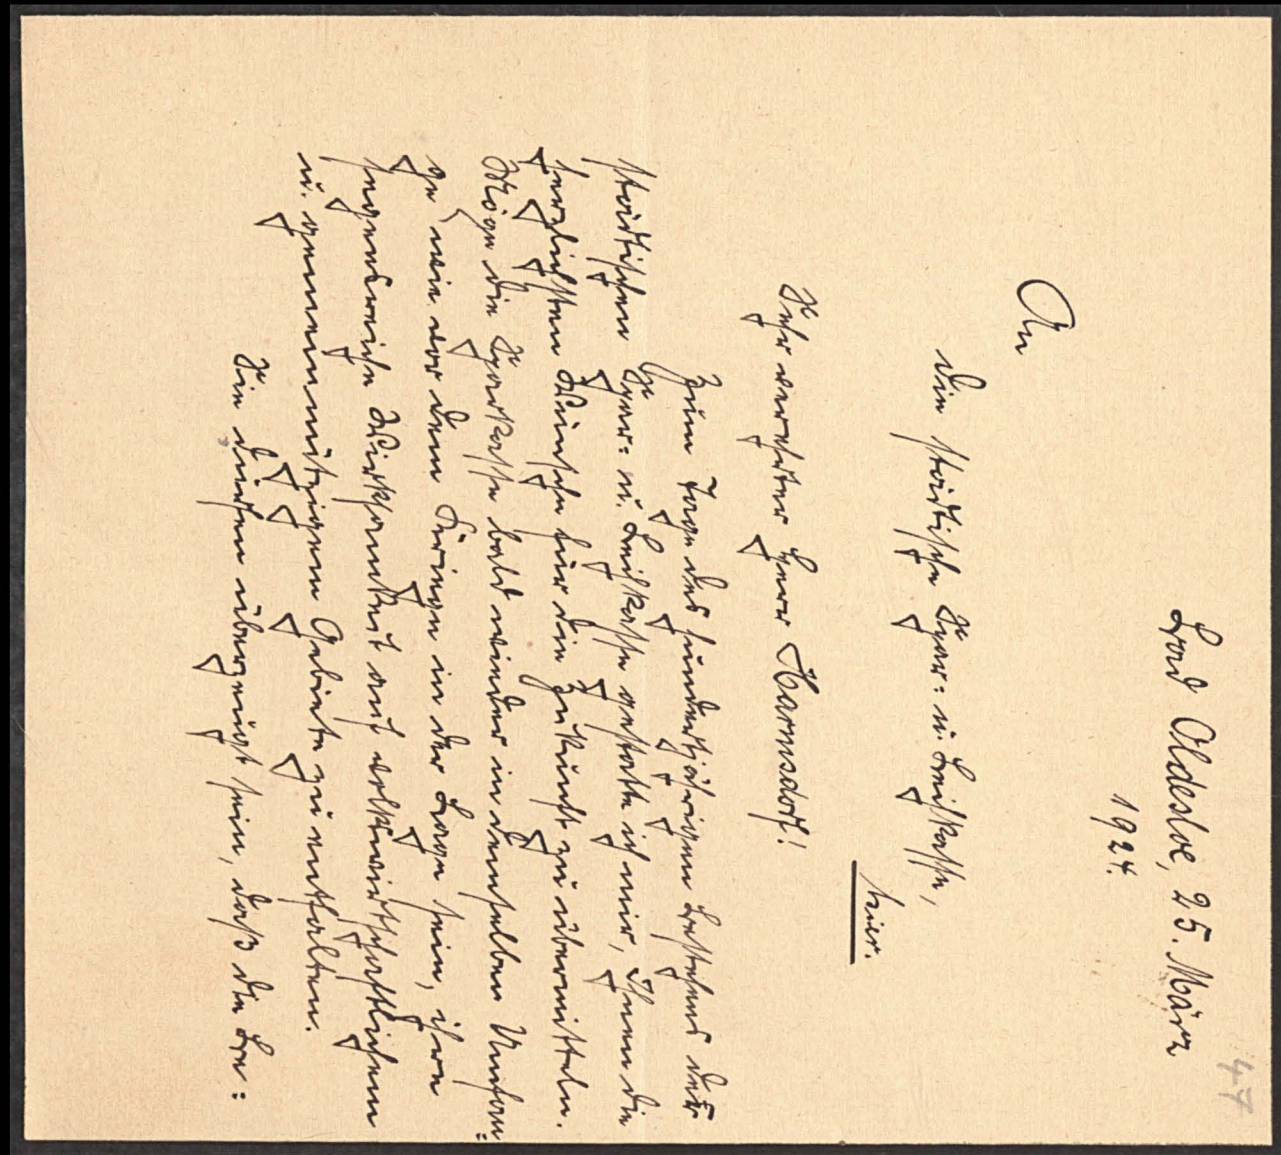 47
Bad Oldesloe, 25. März
1924.
An
die städtische Spar= u. Leihkasse,
hier.
Sehr verehrter Herr Harmsdorf!
Zum Tage des hundertjährigen Bestehens der
städtischen Spar= u. Leihkasse gestatte ich mir, Ihnen die
herzlichsten Wünsche für die Zukunft zu übermitteln.
Möge die Sparkasse bald wieder in demselben Umfan=
ge wie vor dem Kriege in der Lage sein, ihre
segensreiche Wirksamkeit auf volkswirtschaftlichem
u. gemeinnützigem Gebiete zu entfalten.
Sie dürfen überzeugt sein, daß die Be=